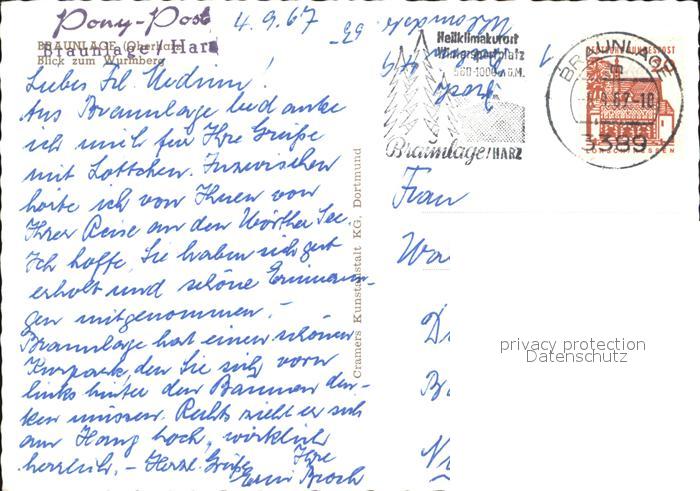 Pony-Post
Braunlage / Harz
4.9.67
BRAUNLAGE (Oberharz)
Blick zum Wurmberg
Heilklimakurort
Wintersportplatz
560-1000 m ü.M.
Braunlage / HARZ
BRAUNLAGE
-4.9.67-10
3389
DEUTSCHE BUNDESPOST
LORSCH / HESSEN
Liebes Frl.
Aus Braunlage bedanke
ich mich für Ihre Grüße
mit Lottchen. Inzwischen
hörte ich von Ihnen von
Ihrer Reise an den Wörther See.
Ich hoffe, Sie haben sich gut
erholt und schöne Erinnerun-
gen mitgenommen. –
Braunlage hat einen schönen
Kurpark, den Sie sich vorn
links hinter den Bäumen den-
ken müssen. Rechts zieht er sich
am Hang hoch, wirklich
herrlich. – Herzl. Grüße Ihre
Cramers Kunstanstalt KG, Dortmund
Frau
privacy protection
Datenschutz